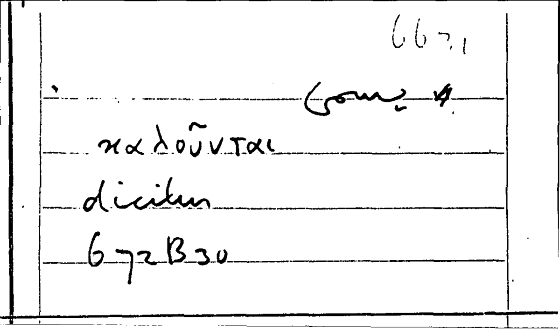 667.1
καλοῦνται
dicitur
672B30